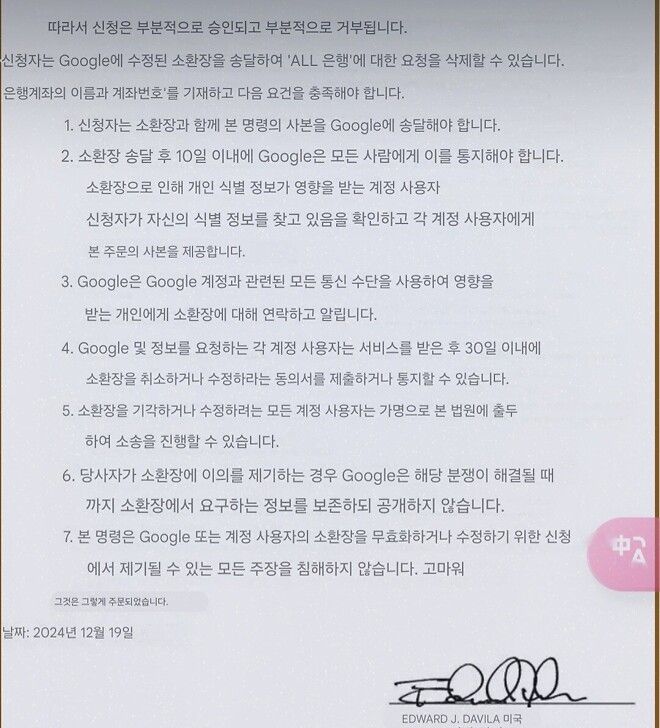 따라서 신청은 부분적으로 승인되고 부분적으로 거부됩니다.
신청자는 Google에 수정된 소환장을 송달하여 'ALL 은행'에 대한 요청을 삭제할 수 있습니다.
은행계좌의 이름과 계좌번호'를 기재하고 다음 요건을 충족해야 합니다.
1. 신청자는 소환장과 함께 본 명령의 사본을 Google에 송달해야 합니다.
2. 소환장 송달 후 10일 이내에 Google은 모든 사람에게 이를 통지해야 합니다.
소환장으로 인해 개인 식별 정보가 영향을 받는 계정 사용자
신청자가 자신의 식별 정보를 찾고 있음을 확인하고 각 계정 사용자에게
본 주문의 사본을 제공합니다.
3. Google은 Google 계정과 관련된 모든 통신 수단을 사용하여 영향을
받는 개인에게 소환장에 대해 연락하고 알립니다.
4. Google 및 정보를 요청하는 각 계정 사용자는 서비스를 받은 후 30일 이내에
소환장을 취소하거나 수정하라는 동의서를 제출하거나 통지할 수 있습니다.
5. 소환장을 기각하거나 수정하려는 모든 계정 사용자는 가명으로 본 법원에 출두
하여 소송을 진행할 수 있습니다.
6. 당사자가 소환장에 이의를 제기하는 경우 Google은 해당 분쟁이 해결될 때
까지 소환장에서 요구하는 정보를 보존하되 공개하지 않습니다.
7. 본 명령은 Google 또는 계정 사용자의 소환장을 무효화하거나 수정하기 위한 신청
에서 제기될 수 있는 모든 주장을 침해하지 않습니다. 고마워
그것은 그렇게 주문되었습니다.
날짜: 2024년 12월 19일
EDWARD J. DAVILA 미국